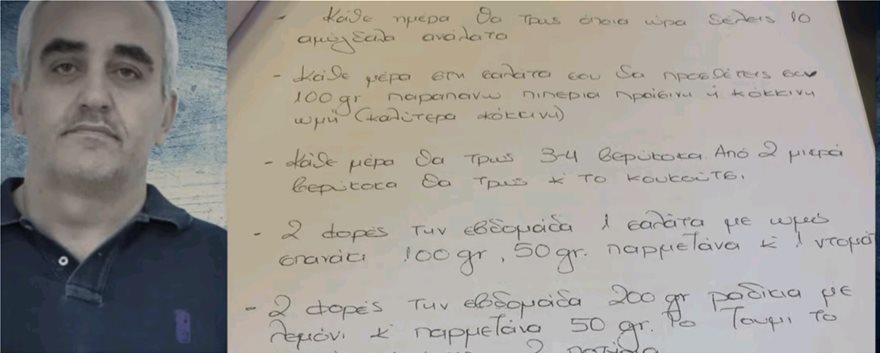 - Κάθε ημέρα θα τρως όποια ώρα θέλεις 10
αμύγδαλα ανάλατα
- Κάθε μέρα στη σαλάτα σου θα προσθέτεις συν
100gr παραπάνω πιπεριά πράσινη ή κόκκινη
ωμή (καλύτερα κόκκινη)
- Κάθε μέρα θα τρως 3-4 βερύκοκα. Από 2 μικρά
βερύκοκα θα τρως κ το κουκούτσι.
- 2 φορές την εβδομάδα 1 σαλάτα με ωμό
σπανάκι 100gr, 50gr. παρμεζάνα κ 1 ντομά
- 2 φορές την εβδομάδα 200gr ραδίκια με
λεμόνι κ παρμεζάνα 50gr. Το ζουμί το
2